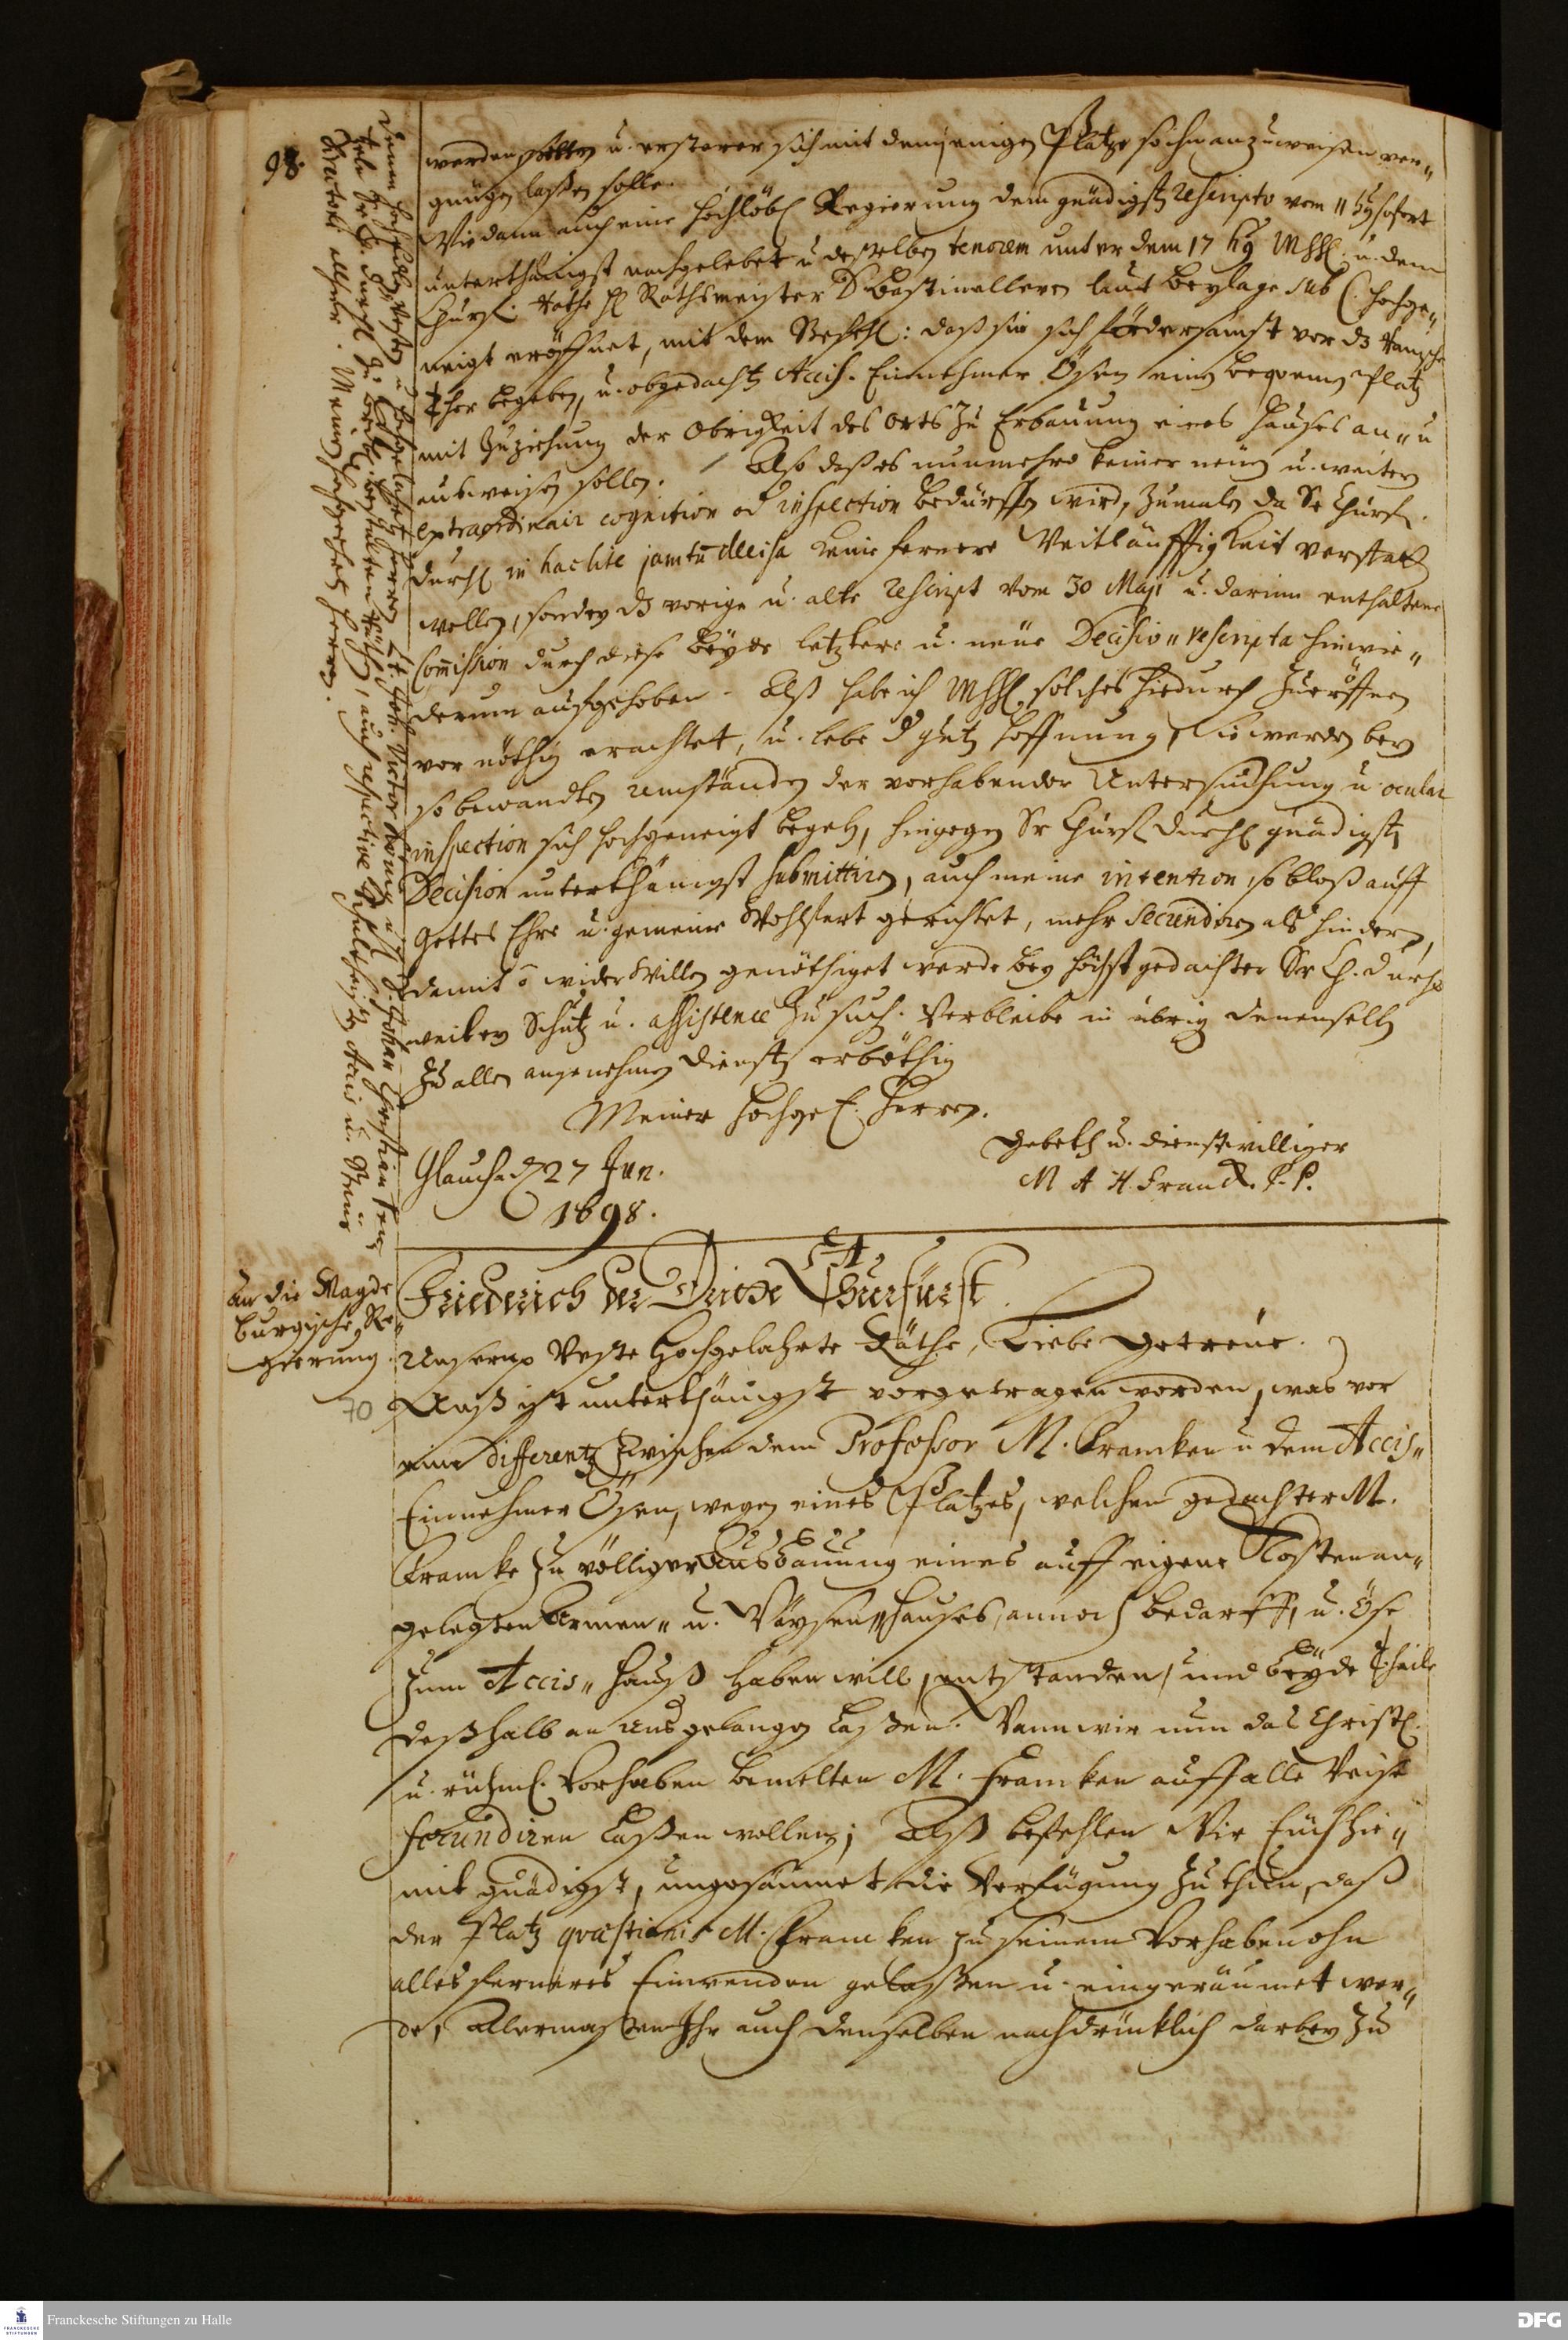 98.
werden sollen u. ersterer sich mit demjenigen Platze so ihm anzuweisen ver„
gnügen laßen solle.
Wie dann auch eine hochlöbl Regierung dem gnädigst rescripto vom 11 hj sofort
unterthänigst nachgelebet u deßelben tenorem unter dem 17 hj MhhH. u. dem
Churf. Rathe H Rathsmeister D Bastinellern laut Beylage sub C. hochge„
neigt eröffnet, mit dem Befehl: daß sie sich fördersamst vor dz Rannsche
Thor begeben, u. obgedacht Accis-Einnehmer Ösen einen beqvemen Platz
mit Zuziehung der Obrigkeit des Orts zu Erbauung eines Hauses an„ u
ausweisen sollen. Also daß es nunmehro keiner neuen u. weitern
extraordinair cognition od inspection bedürffen wird, zumalen da Sr Churf.
Durchl in hac lite jam tum decisa keine fernere Weitläufftigkeit verstatten
wollen, sondern dz vorige u. alte rescript vom 30 Maji u. darinn enthaltene
Commission durch diese beyde letztere u. neue Decisiv„ rescripta hinwie„
derum aufgehoben. Alß habe ich MhhH. solches hiedurch zu eröffnen
vor nöthig erachtet, u. lebe d guten Hoffnung, Sie werden bey
so bewandten umständen der vorhabender Untersuchung u. ocular
inspection sich hochgeneigt begeben, hingegen Sr Churf Durchl gnädigsten
Decision unterthänigst submittiren, auch meine intention so bloß auff
Gottes Ehre u. gemeine Wohlfart gerichtet, mehr secundiren als hindern,
damit wider Willen genöthiget werde bey höchstgedachter Sr Ch. Durchl
weitern Schutz u. assistence zu suchen. Verbleibe in übrig denenselben
zu allen angenehmen Diensten erböthig
Meiner Hochgel. Herren.
Gebeth u. dienstwilliger
M A H. Franck. P. P.
Glauch d 27 Jun.
1698.
An die Magde
burgische Re„
gierung.
Friederich der Dritte Churfürst.
Unsern Veste Hochgelahrte Räthe, Liebe Getreue.
70
Unß ist unterthänigst vorgetragen worden, was vor
eine Differentz zwischen dem Professor M. Francken u dem Accis„
Einnehmer Ösen, wegen eines Platzes, welchen gedachter M.
Francke zu völliger Ausbauung eines auff eigene Kosten an„
gelegten Armen„ u. Wäysen„ Hauses, annoch bedarff, u. Öse
zum Accis„ Hauß haben will, entstanden, und beyde Theile
deßhalb an uns gelangen laßen. Wann wir nun das Christl.
u. rühml. Vorhaben bemelten M. Francken auff alle Weise
secundiren laßen wollen; Alß befehlen Wir Euch hie„
mit gnädigst, ungesäumet die Verfügung zu thun, daß
der Platz qvæstionis M. Francken zu seinem Vorhaben ohn
alles ferneres Einwenden gelaßen u. eingeräumet wer„
de, Allermaßen Ihr auch denselben nachdrücklich darbey zu
Franckesche Stiftungen zu Halle
DFG